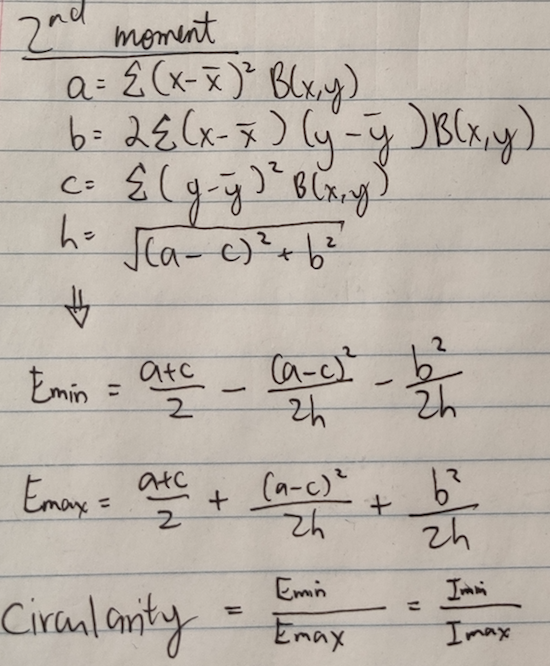 2nd moment
a = Σ(x-x̄)² B(x,y)
b = 2Σ(x-x̄)(y-ȳ)B(x,y)
c = Σ(y-ȳ)² B(x,y)
h = √((a-c)² + b²)
⇓
Emin = (a+c)/2 - (a-c)²/2h - b²/2h
Emax = (a+c)/2 + (a-c)²/2h + b²/2h
Circularity = Emin/Emax = Imin/Imax